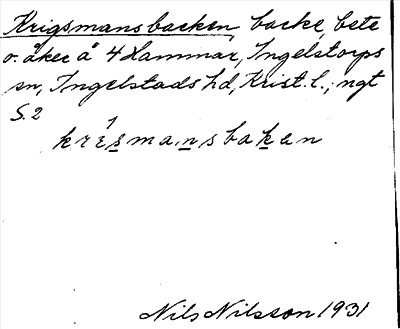 Krigsmansbacken, backe, bete
o. åker å 4 Hammar, Ingelstorps
sn, Ingelstads hd, Krist. l.; ngt
S. 2
Nils Nilsson 1931